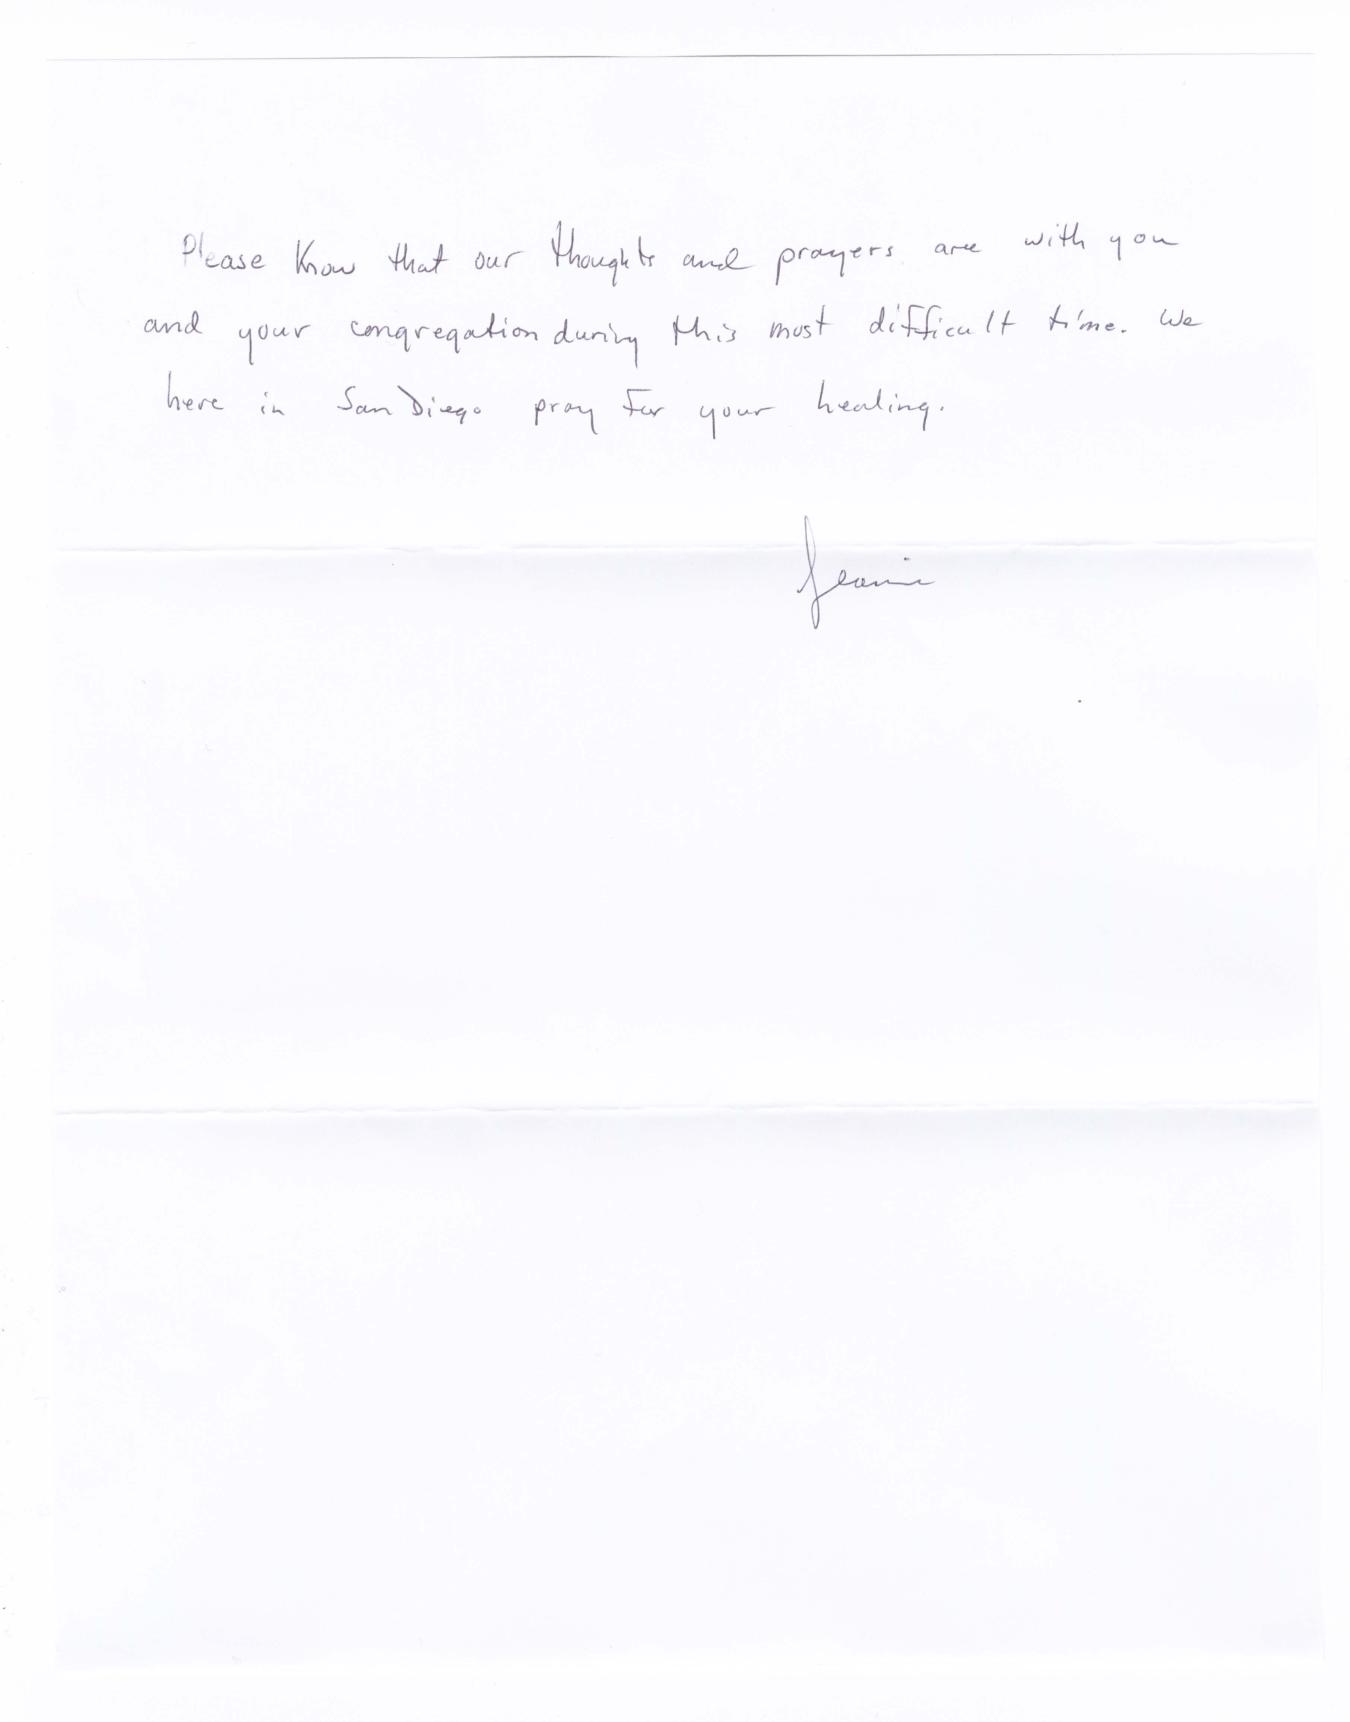 Please Know that our thoughts and prayers are with you
and your congregation during this most difficult time. We
here in San Diego pray for your healing.